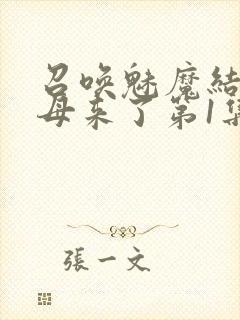 召唤魅魔结
母来了第1集
張一文